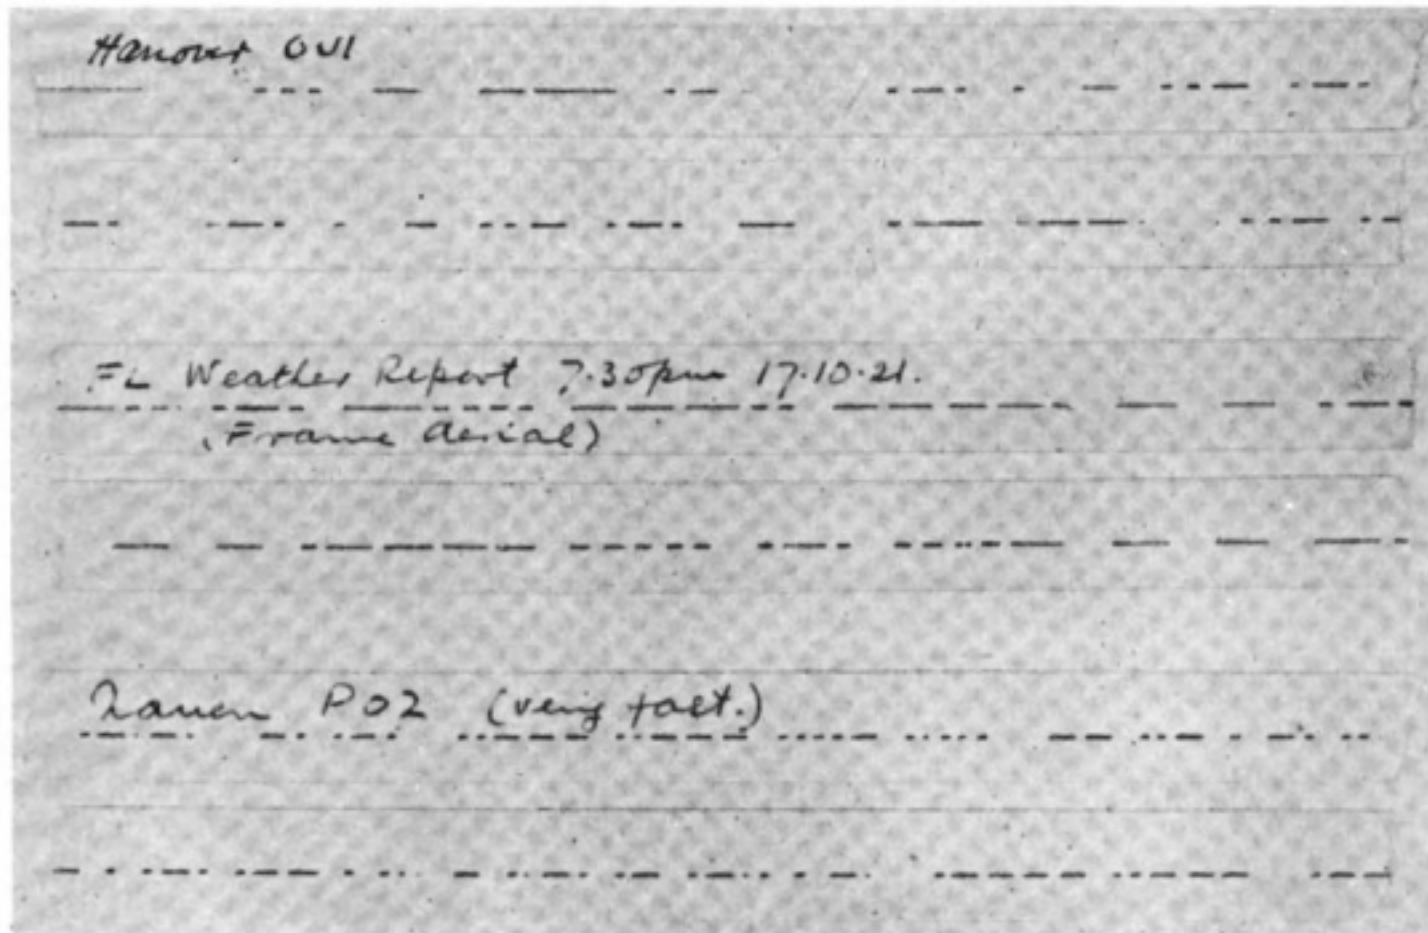 Hanover OUI
FL Weather Report 7.30pm 17.10.21.
(Frame Aerial)
Nauen POZ (very fast.)